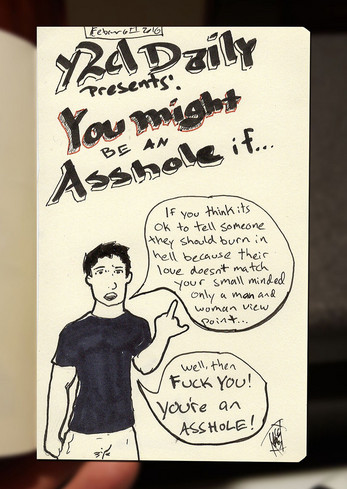 y2d Daily
Presents:
You might
BE AN
Asshole if...
If you think its
Ok to tell someone
they should burn in
hell because their
love doesnt match
your small minded
only a man and
woman view
Point...
Well, then
FUCK YOU!
You're an
ASSHOLE!